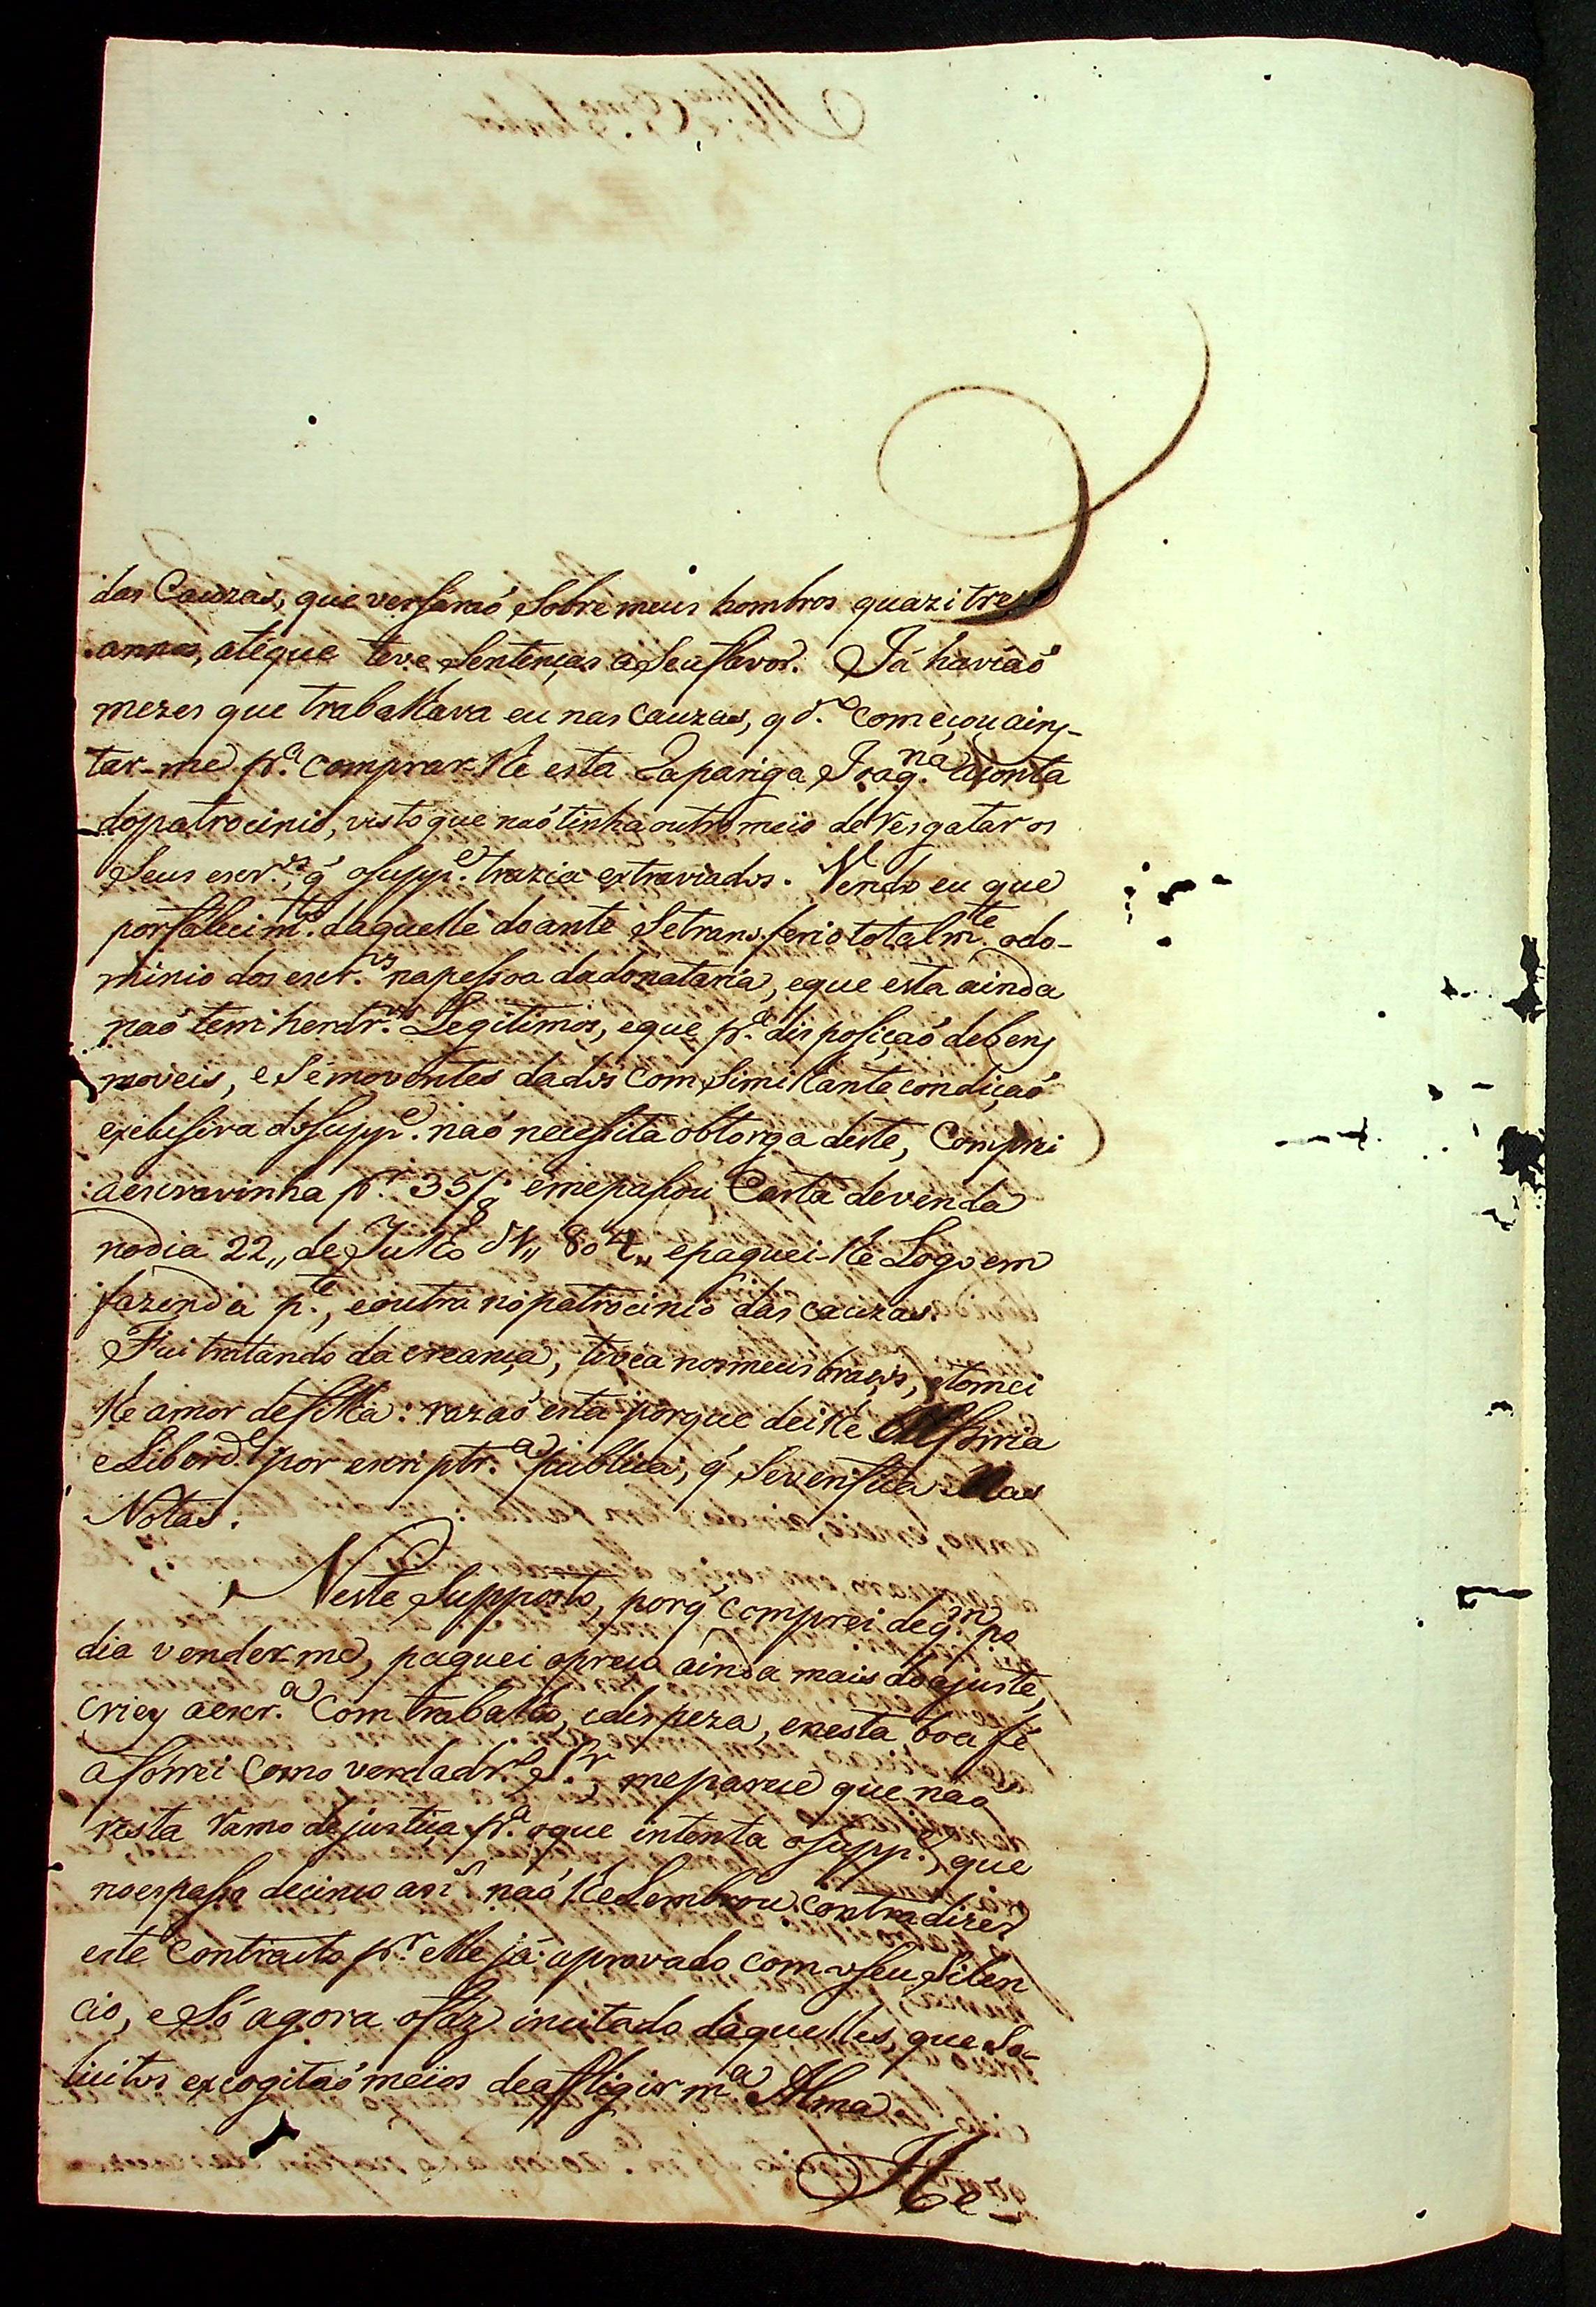 das Cauzas, que versáraó sobre meus hombros quazi tres
annos, atéque teve sentenças a seu favor. Já haviaó
mezes que trabalhava eu nas cauzas, qdº. começou a ins-
tar-me pª. comprar lhe esta Rapariga Joaqna. á conta
do patrocinio, visto que naó tinha outro meio de resgatar os
seus escrvs., q̃ o suppe. trazia extraviados. Vendo eu que
por falecimto. daquelle doante se transferio totalmte. o do-
minio dos escrvs. na pessoa da donataria, e que esta ainda
naó tem herdrºs. Legitimos, e que pª. disposiçaó de bens
moveis, e semoventes dados com similhante condiçaó
exclusiva do suppe. naó necessita obtorga deste, comprei
a escravinha pr. 35/8 e me passou Carta de venda
no dia 22,, de Julho d',, 804,, e paguei-lhe Logo em
fazenda pte., e outra no patrocinio das cauzas.
Fui tratando da creança, tivea nos meus braços, e tomei
lhe amor de filha: razaó esta porque dei lhe Alforria
e Liberde. por escriptrª. publica, q̃ se verifica nas
Notas.
Neste supposto, porq̃ comprei de qm. po
dia vender-me, paguei o preço ainda mais do ajuste,
criey a escrª. com trabalho, e despeza, e nesta boa fé
a forrei como verdadrº. Sr., me parece que naó
resta ramo de justiça pª. o que intenta o suppe., que
no espasso de cinco anˢ. naó lhe Lembrou contradizer
este contracto pr. elle já aprovado com o seu silen
cio, e só agora o faz incitado daquelles, que so-
licitos excogitaó meios de affligir mª. Alma.
He